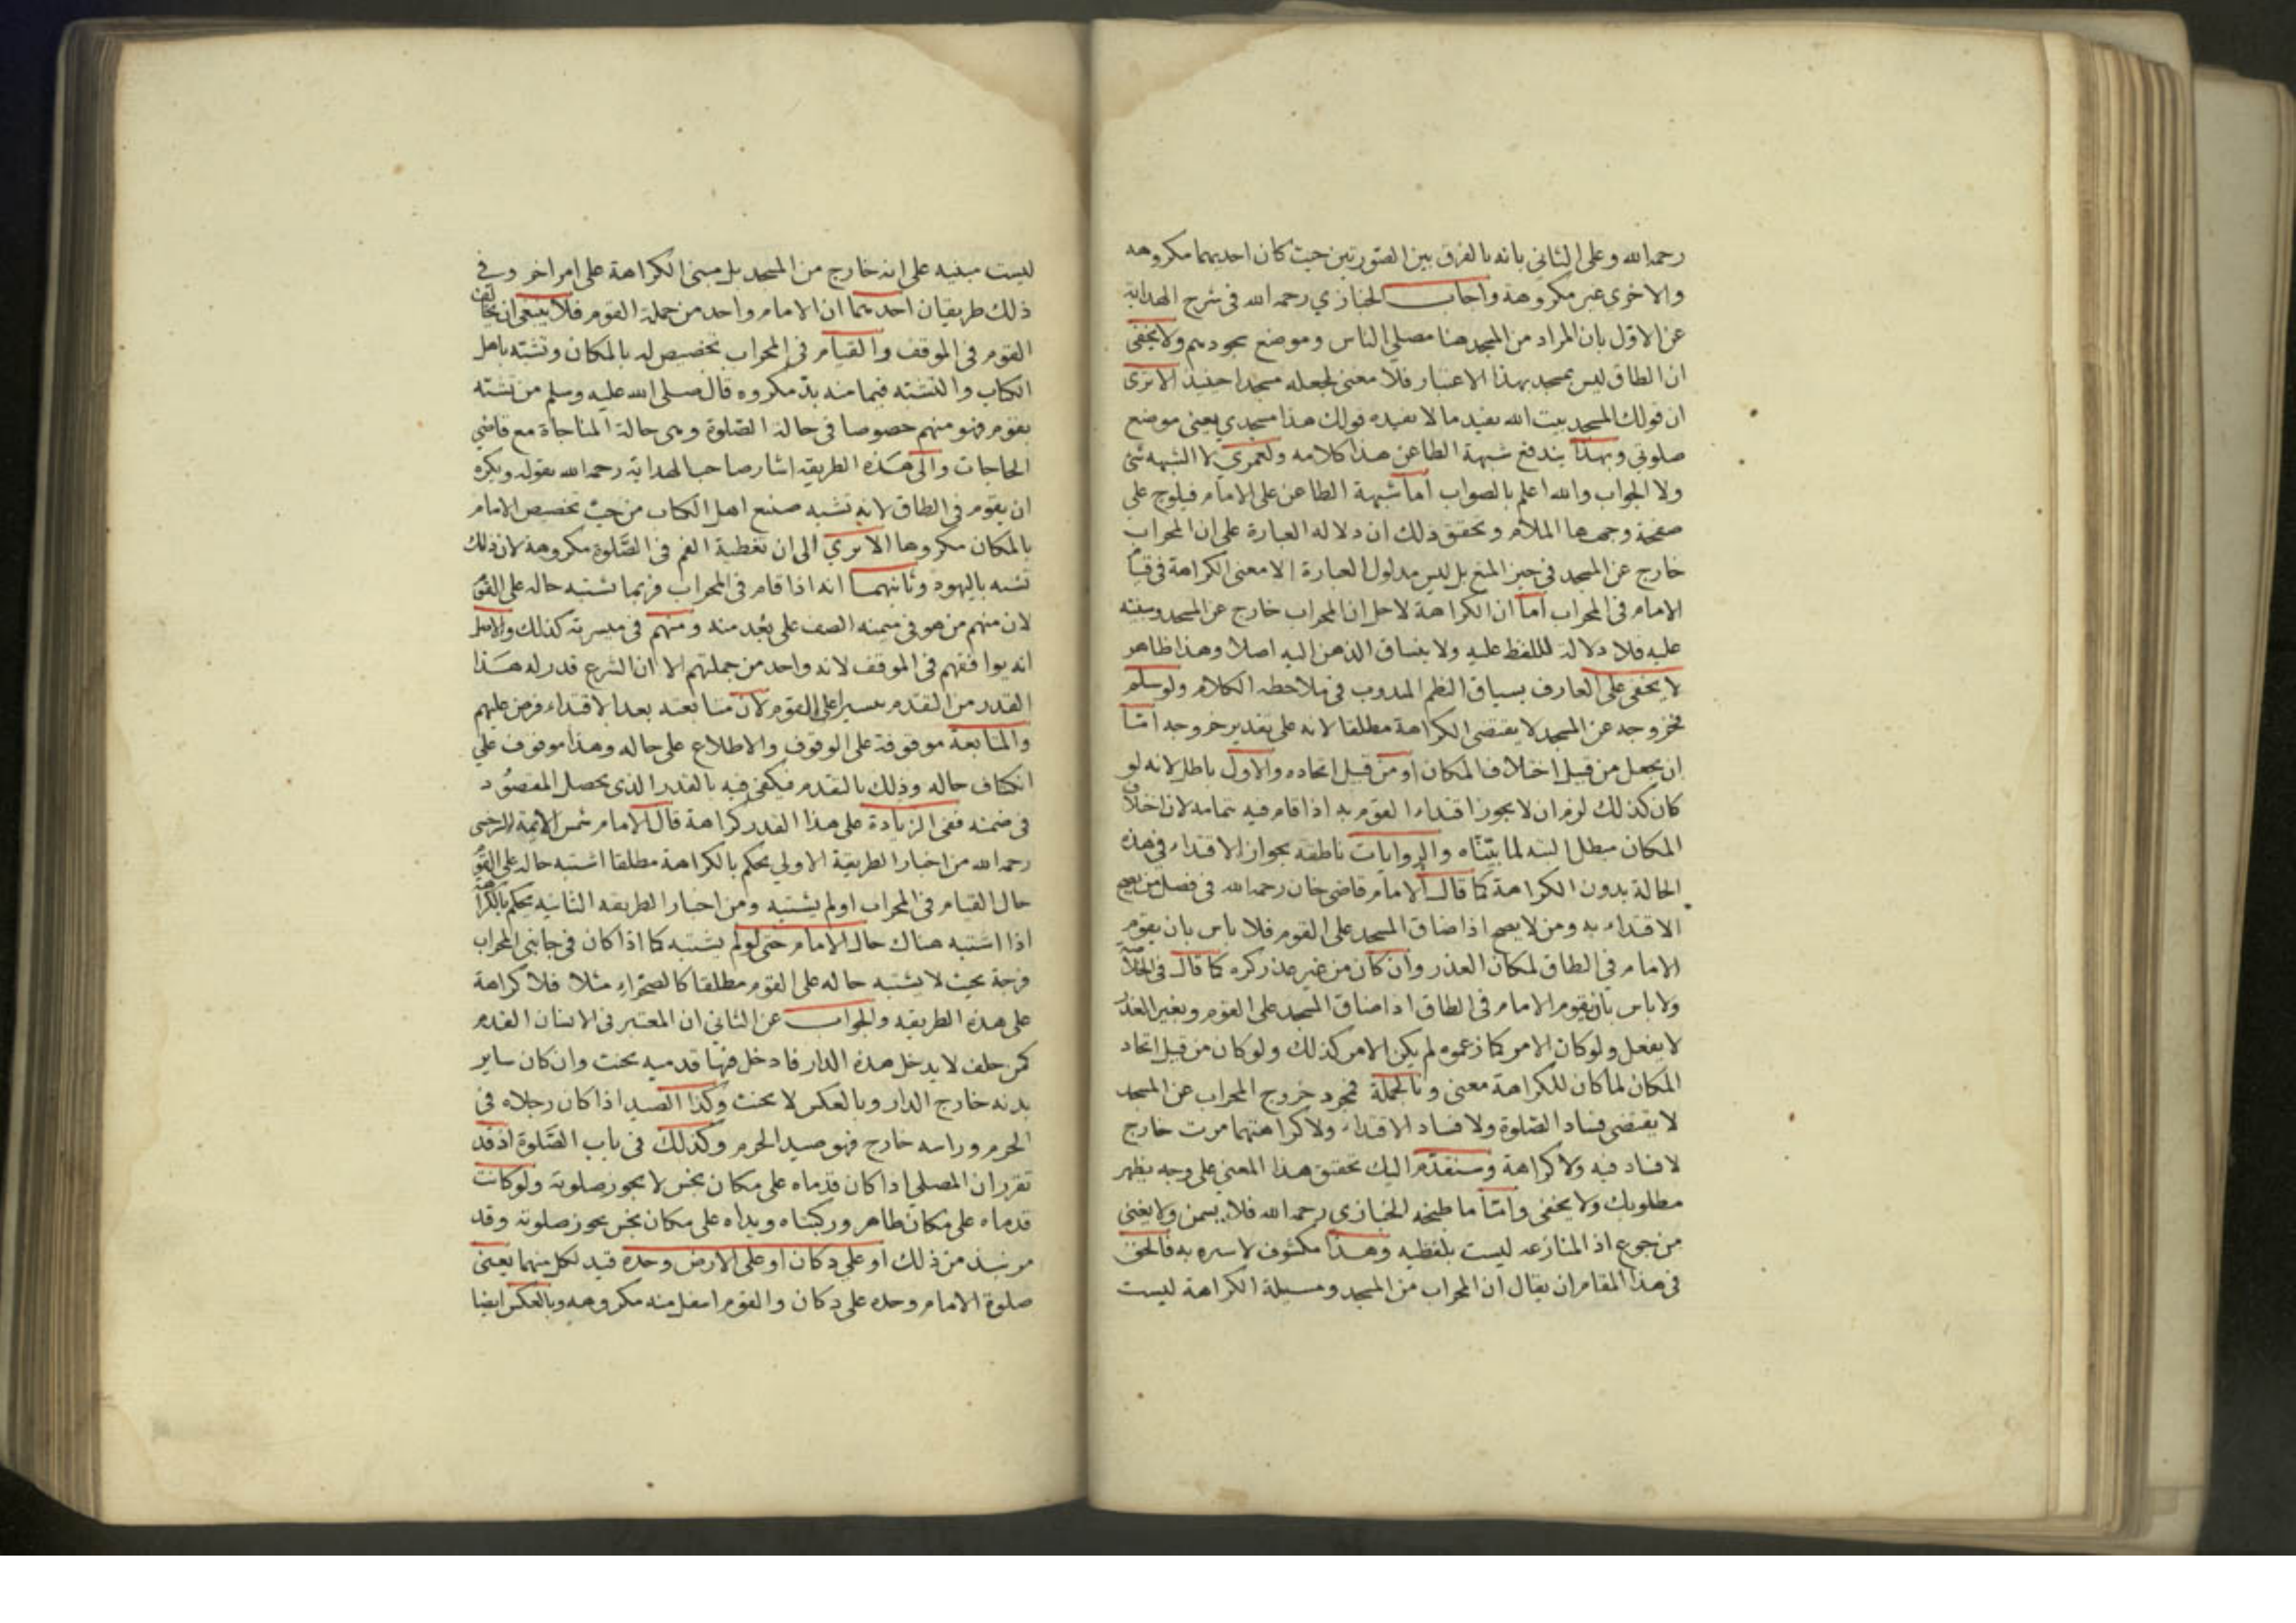 رحمه الله وعلى الثاني بانه بالفرق بين الصورتين حيث كان احديهما مكروهه
والاخرى غير مكروهة واجاب الخبازي رحمه الله في شرح الهداية
عن الاول بان المراد من المسجد هنا مصلى الناس وموضع سجودهم ولا يخفى
ان الطاق ليس بمسجد بهذا الاعتبار فلا معنى لجعله مسجدا حينيذ الا ترى
ان قولك المسجد بيت الله يفيد ما لا يفيده قولك هذا مسجدي يعنى موضع
صلوتي وبهذا يندفع شبهة الطاعن هذا كلامه ولعمري لا الشبهه شئ
ولا الجواب والله اعلم بالصواب اما شبهة الطاعن على الامام فيلوح على
صفحة وجهها الملام وتحقق ذلك ان دلاله العبارة على ان المحراب
خارج عن المسجد في حيز المنع بل ليس مدلول العبارة الا معنى الكراهة في قيام
الامام في المحراب اما ان الكراهة لاجل ان المحراب خارج عن المسجد ومبنيه
عليه فلا دلالة لللفظ عليه ولا ينساق الذهن اليه اصلا وهذا ظاهر
لا يخفى على العارف بسياق النظم المدرب في ملاحظه الكلام ولو سلم
فخروجه عن المسجد لا يقتضي الكراهة مطلقا لانه على تقدير خروجه اما
ان يجعل من قبل اختلاف المكان او من قبل اتحاده والاول باطل لانه لو
كان كذلك لزم ان لا يجوز اقتداء القوم به اذا قام فيه بتمامه لان اختلاف
المكان مبطل البته لما بيّنّاه والروايات ناطقه بجواز الاقتداء في هذه
الحالة بدون الكراهة كما قال الامام قاضي خان رحمه الله في فصل من يصح
الاقتداء به ومن لا يصح اذا ضاق المسجد على القوم فلا باس بان يقوم
الامام في الطاق لمكان العذر وان كان من غير عذر كره كما قال في الخلاصة
ولا باس بان يقوم الامام في الطاق اذا ضاق المسجد على القوم وبغير العذر
لا يفعل ولو كان الامر كما زعموه لم يكن الامر كذلك ولو كان من قبل اتحاد
المكان لما كان للكراهة معنى وبالجملة فمجرد خروج المحراب عن المسجد
لا يقتضي فساد الصلوة ولا فساد الاقتداء ولا كراهتهما مرت خارج
لا فساد فيه ولا كراهة وسنقدم اليك تحقيق هذا المعنى على وجه يظهر
مطلوبك ولا يخفى واما ما طبخه الخبازي رحمه الله فلا يسمن ولا يغنى
من جوع اذ المنازعه ليست بلفظيه وهذا مكشوف لا ستره به فالحق
في هذا المقام ان يقال ان المحراب من المسجد ومسيلة الكراهة ليست
ليست مبنيه على انه خارج من المسجد بل مبنى الكراهة على امر اخر وفي
ذلك طريقان احديهما ان الامام واحد من جملة القوم فلا ينبغى ان يخالف
القوم في الموقف والقيام في المحراب تخصيص له بالمكان وتشبّه باهل
الكتاب والتشبّه فيما منه بدّ مكروه قال صلى الله عليه وسلم من تشبّه
بقوم فهو منهم خصوصا في حالة الصّلوة وهى حالة المناجاة مع قاضي
الحاجات والى هذه الطريقه اشار صاحب الهداية رحمه الله بقوله ويكره
ان يقوم في الطاق لانه تشبه صنيع اهل الكتاب من حيث تخصيص الامام
بالمكان مكروها الا يري الى ان تغطية الفم في الصّلوة مكروهة لان ذلك
تشبه باليهود وثانيهما انه اذا قام في المحراب فربما تشتبه حاله على القوم
لان منهم من هو في ميمنه الصف على بُعد منه ومنهم في ميسرته كذلك والاصل
انه يوافقهم في الموقف لانه واحد من جملتهم الا ان الشرع قدر له هذا
القدر من التقدم تيسيرا على القوم لان متابعته بعد الاقتداء فرض عليهم
والمتابعة موقوفة على الوقوف والاطلاع على حاله وهذا موقوف على
انكشاف حاله وذلك بالتقدم فيكفى فيه بالقدر الذى يحصل المقصود
في ضمنه ففى الزيادة على هذا القدر كراهة قال الامام شمس الايمة السرخسى
رحمه الله من اختار الطريقة الاولي يحكم بالكراهة مطلقا اشتبه حاله على القوم
حال القيام في المحراب اولم يشتبه ومن اختار الطريقه الثانيه يحكم بالكراهة
اذا اشتبه هناك حال الامام حتى لو لم يشتبه كما اذا كان في جانبى المحراب
فرجة بحيث لا يشتبه حاله على القوم مطلقا كالصحراء مثلا فلا كراهة
على هذه الطريقه والجواب عن الثاني ان المعتبر في الانسان القدم
كمن حلف لا يدخل هذه الدار فادخل فيها قدميه يحنث وان كان ساير
بدنه خارج الدار وبالعكس لا يحنث وكذا الصيد اذا كان رجلاه في
الحرم وراسه خارج فهو صيد الحرم وكذلك في باب الصّلوة اذ قد
تقرر ان المصلي اذا كان قدماه على مكان نجس لا يجوز صلوته ولو كانت
قدماه على مكان طاهر وركبتاه ويداه على مكان نجس يجوز صلوته وقد
مر نبذ من ذلك او على دكان او على الارض وحده قيد لكل منهما يعنى
صلوة الامام وحده على دكان والقوم اسفل منه مكروهه وبالعكس ايضا